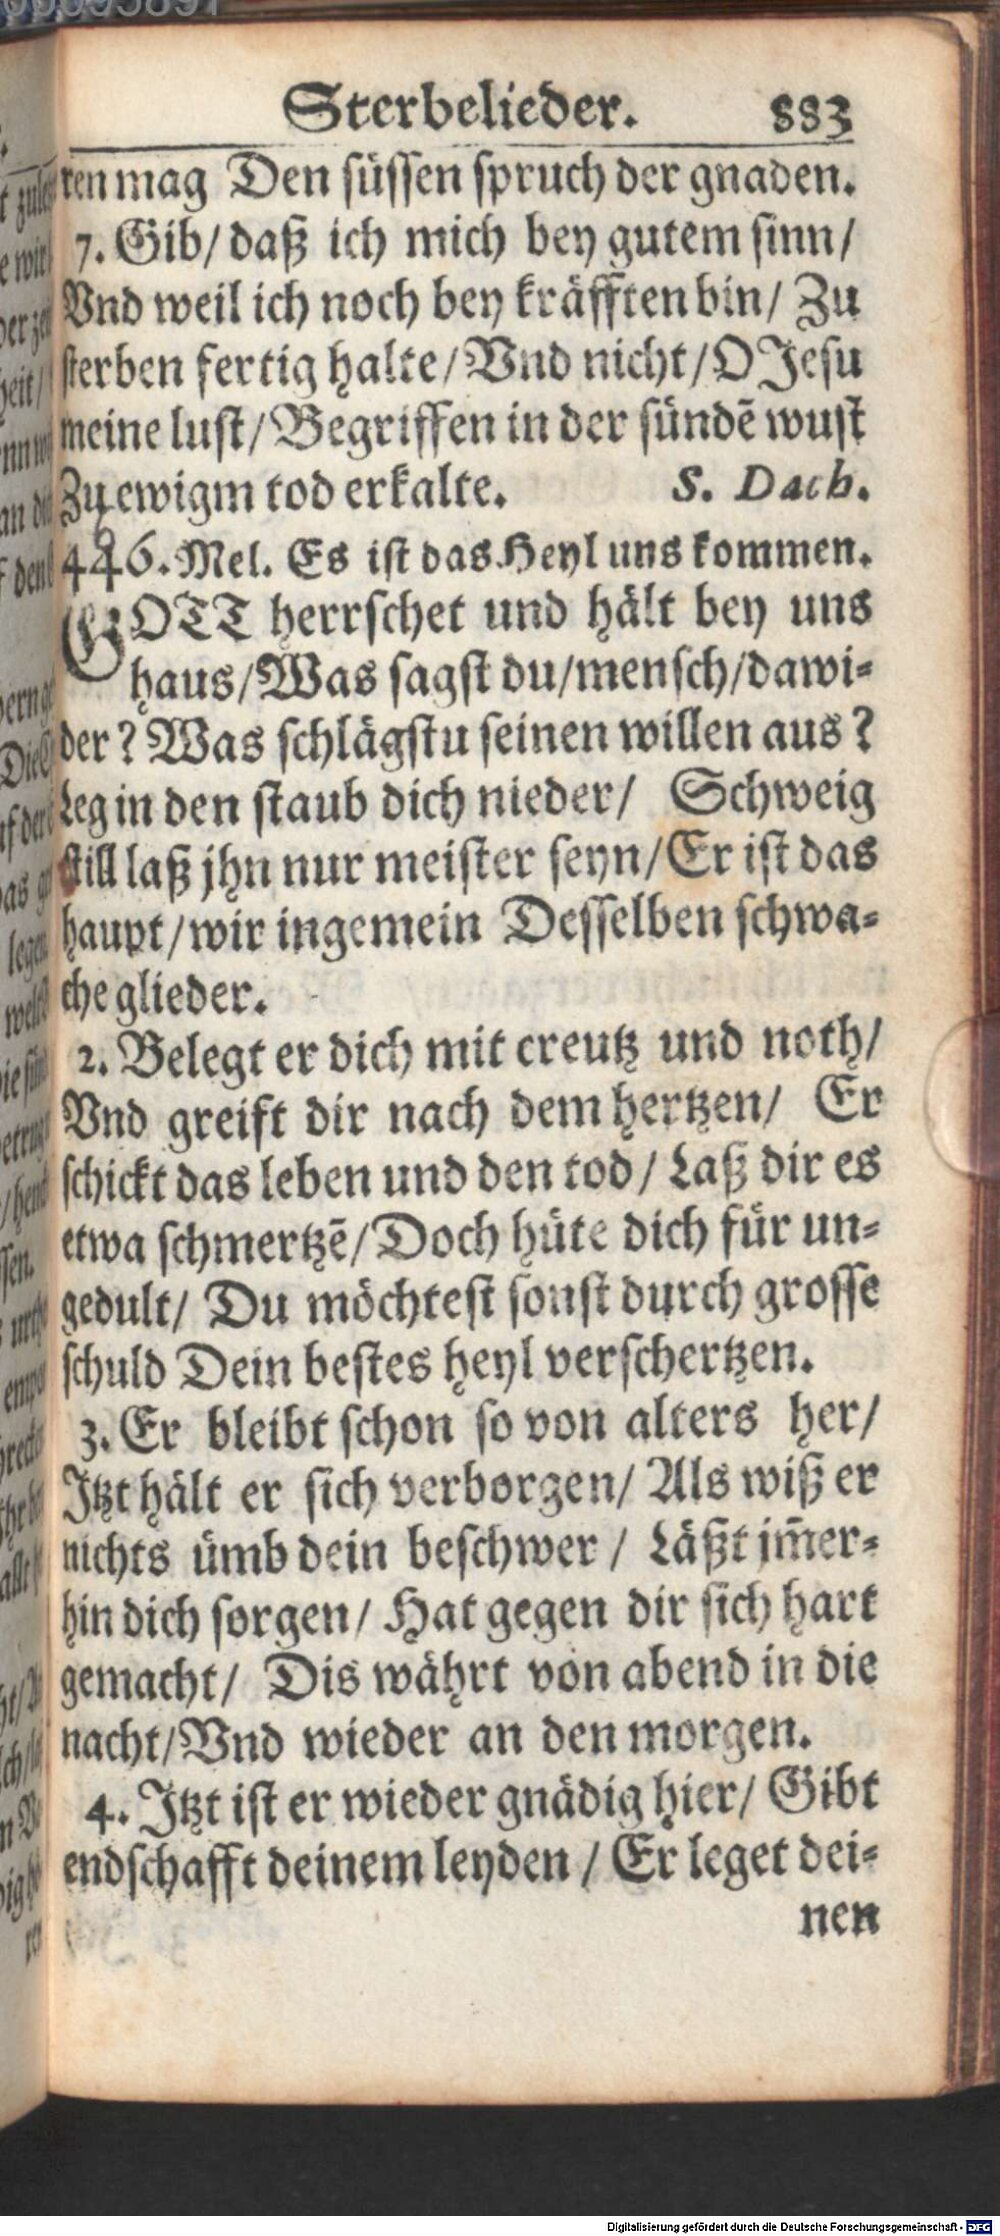 Sterbelieder. 883
ren mag Den süssen spruch der gnaden.
7. Gib/ daß ich mich bey gutem sinn/
Vnd weil ich noch bey kräfften bin/ Zu
sterben fertig halte/ Vnd nicht/ O Jesu
meine lust/ Begriffen in der sündē wust
Zu ewigm tod erkalte. S. Dach.
446. Mel. Es ist das Heyl uns kommen.
GOTT herrschet und hält bey uns
haus/ Was sagst du/ mensch/ dawi-
der? Was schlägstu seinen willen aus?
Leg in den staub dich nieder/ Schweig
still laß jhn nur meister seyn/ Er ist das
haupt/ wir ingemein Desselben schwa-
che glieder.
2. Belegt er dich mit creutz und noth/
Vnd greift dir nach dem hertzen/ Er
schickt das leben und den tod/ Laß dir es
etwa schmertzē/ Doch hüte dich für un-
gedult/ Du möchtest sonst durch grosse
schuld Dein bestes heyl verschertzen.
3. Er bleibt schon so von alters her/
Jtzt hält er sich verborgen/ Als wiß er
nichts ümb dein beschwer/ Läßt jm̄er-
hin dich sorgen/ Hat gegen dir sich hart
gemacht/ Dis währt von abend in die
nacht/ Vnd wieder an den morgen.
4. Jtzt ist er wieder gnädig hier/ Gibt
endschafft deinem leyden/ Er leget dei-
nen
Digitalisierung gefördert durch die Deutsche Forschungsgemeinschaft - DFG